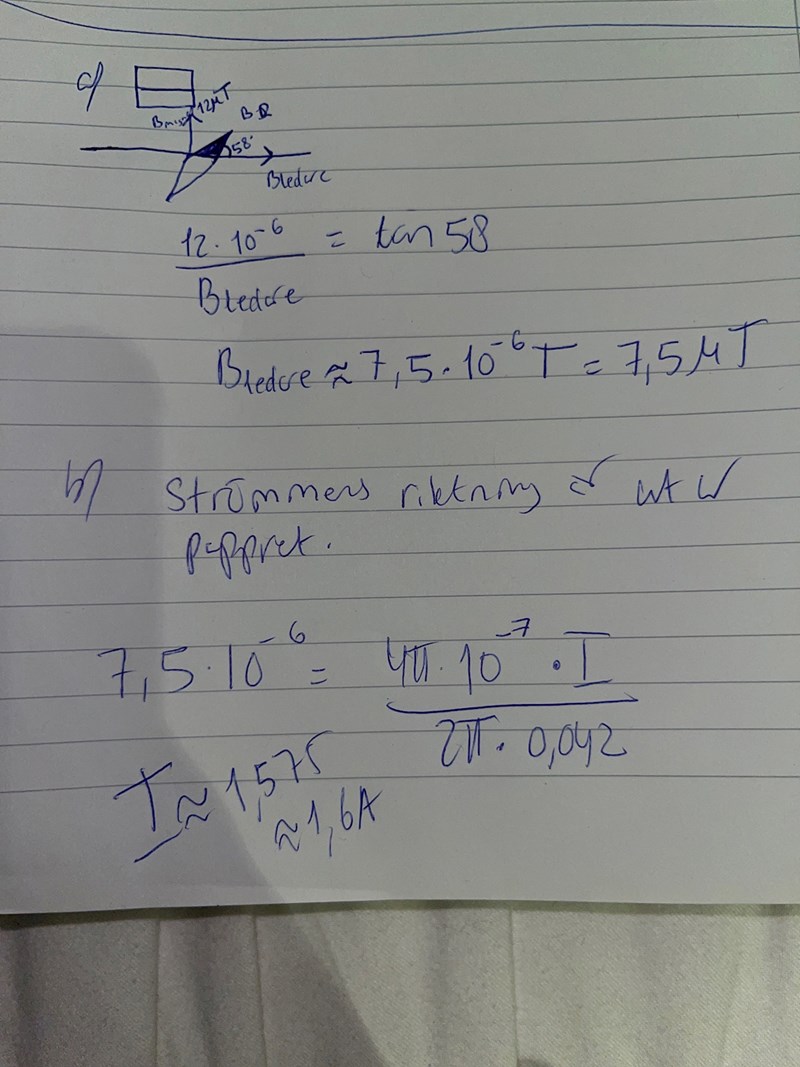 a)
12μT
B R
58°
Bledare
12·10⁻⁶ / Bledare = tan 58
Bledare ≈ 7,5·10⁻⁶ T = 7,5 μT
b) Strömmens riktning är ut ur
pappret.
7,5·10⁻⁶ = 4π·10⁻⁷·I / 2π·0,042
I ≈ 1,575
≈ 1,6A